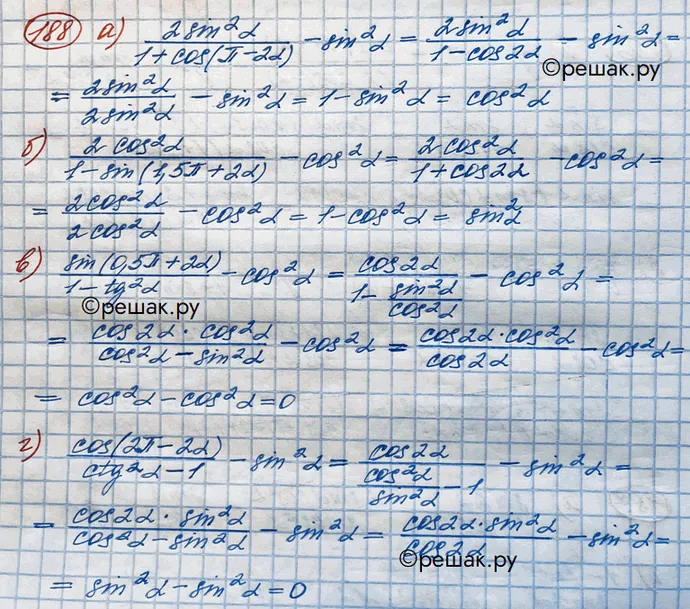 188 а) 2sin²α / (1+cos(π−2α)) − sin²α = 2sin²α / (1−cos2α) − sin²α =
©решак.ру
= 2sin²α / 2sin²α − sin²α = 1−sin²α = cos²α
б) 2cos²α / (1−sin(1,5π+2α)) − cos²α = 2cos²α / (1+cos2α) − cos²α =
= 2cos²α / 2cos²α − cos²α = 1−cos²α = sin²α
в) sin(0,5π+2α) / (1−tg²α) − cos²α = cos2α / (1− sin²α/cos²α) − cos²α =
©решак.ру
= cos2α · cos²α / (cos²α − sin²α) − cos²α = cos2α·cos²α / cos2α − cos²α =
= cos²α − cos²α = 0
г) cos(2π−2α) / (ctg²α−1) − sin²α = cos2α / (cos²α/sin²α − 1) − sin²α =
= cos2α · sin²α / (cos²α − sin²α) − sin²α = cos2α·sin²α / cos2α − sin²α =
©решак.ру
= sin²α − sin²α = 0